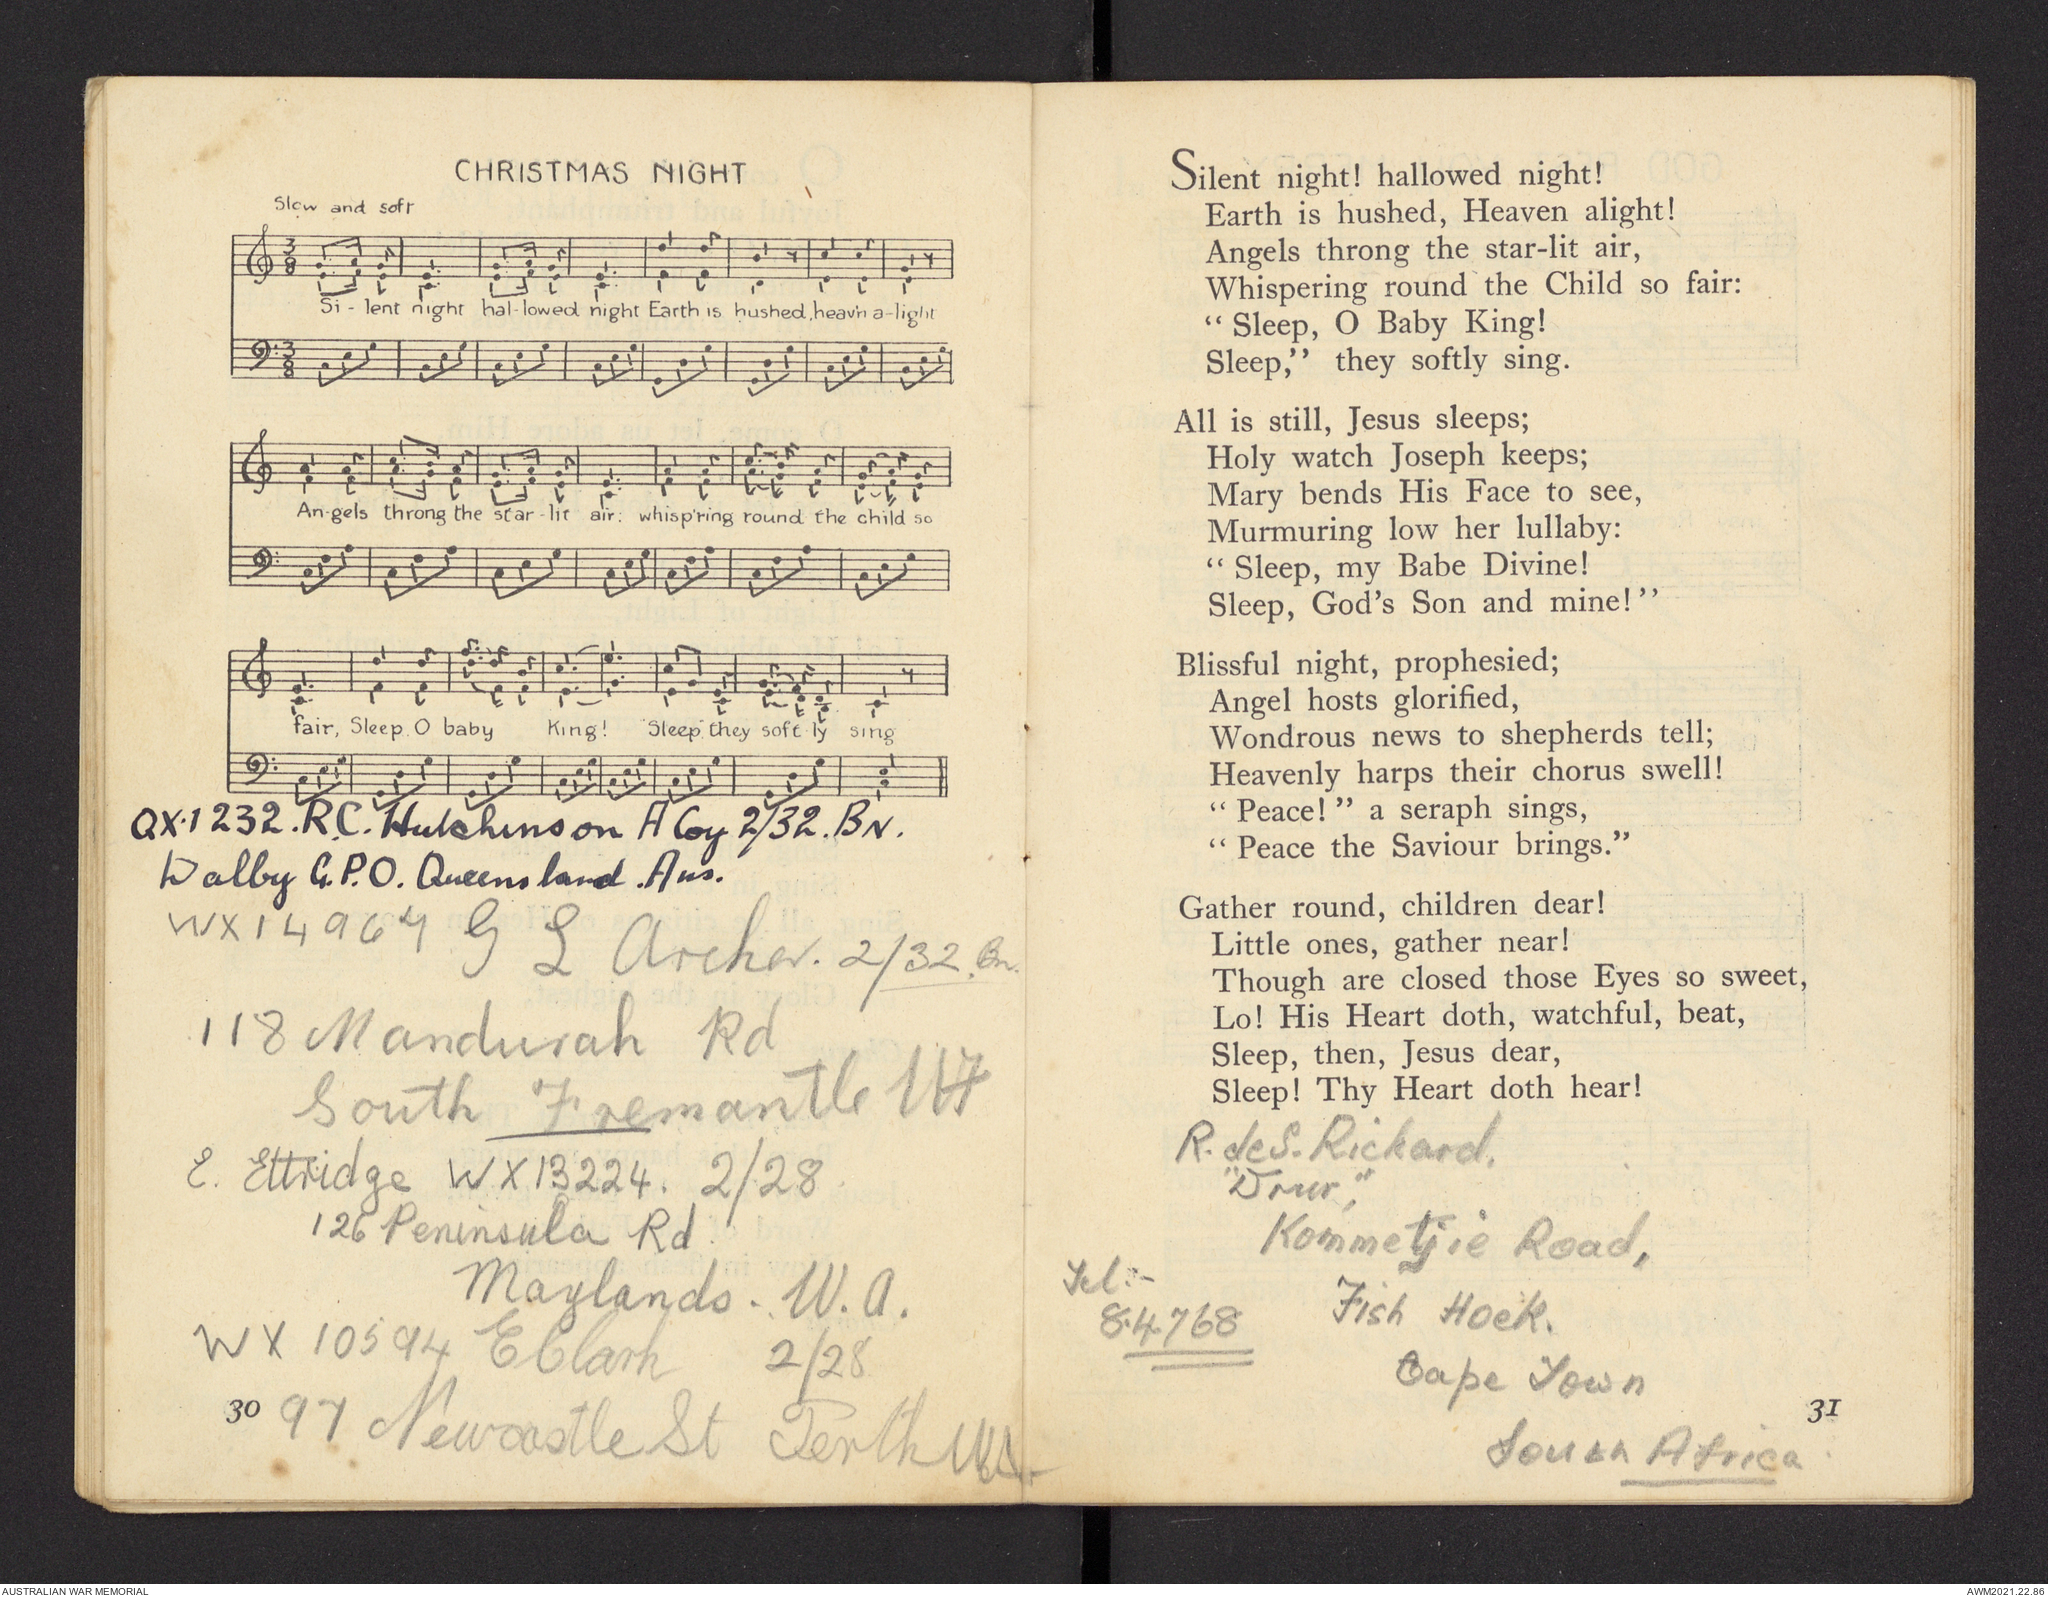 CHRISTMAS NIGHT
Slow and soft
Si - lent night hal-lowed night Earth is hushed, heav'n a-light
An-gels throng the star-lit air: whisp'ring round the child so
fair, Sleep O baby King! "Sleep" they soft-ly sing
QX.1232. R.C. Hutchinson A Coy 2/32. BN.
Dalby G.P.O. Queensland. Aus.
WX14964 G L Archer. 2/32. Bn.
118 Mandurah Rd
South Fremantle WA
E. Ettridge WX13224. 2/28
126 Peninsula Rd.
Maylands. W.A.
WX 10594 E Clark 2/28
30 97 Newcastle St Perth W.A.
Silent night! hallowed night!
Earth is hushed, Heaven alight!
Angels throng the star-lit air,
Whispering round the Child so fair:
“ Sleep, O Baby King!
Sleep,” they softly sing.
All is still, Jesus sleeps;
Holy watch Joseph keeps;
Mary bends His Face to see,
Murmuring low her lullaby:
“ Sleep, my Babe Divine!
Sleep, God’s Son and mine!”
Blissful night, prophesied;
Angel hosts glorified,
Wondrous news to shepherds tell;
Heavenly harps their chorus swell!
“ Peace!” a seraph sings,
“ Peace the Saviour brings.”
Gather round, children dear!
Little ones, gather near!
Though are closed those Eyes so sweet,
Lo! His Heart doth, watchful, beat,
Sleep, then, Jesus dear,
Sleep! Thy Heart doth hear!
R. deS. Rickard.
Kommetjie Road,
Tel:-
8.4768
Fish Hoek.
Cape Town
31
South Africa
AUSTRALIAN WAR MEMORIAL
AWM2021.22.86